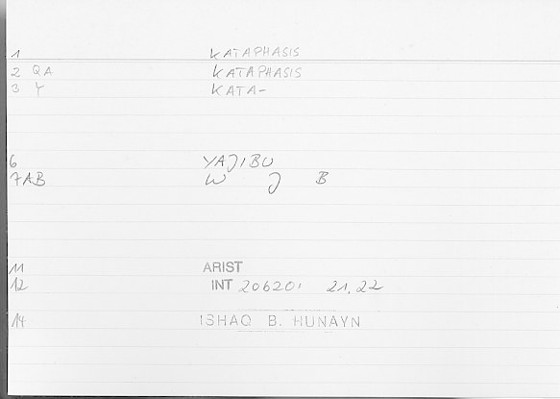 1 KATAPHASIS
2 QA KATAPHASIS
3 Y KATA-
6 YAJIBU
7AB W J B
11 ARIST
12 INT 20b20, 21,22
14 ISHAQ B. HUNAYN